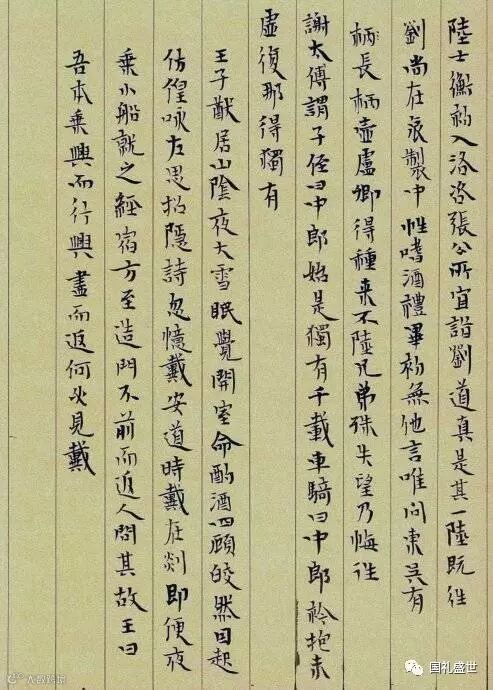 陸士衡初入洛咨張公所宜詣劉道真是其一陸既往
劉尚在哀製中性嗜酒禮畢初無他言唯問東吳有
柄長柄壺盧卿得種来不陸兄弟殊失望乃悔往
謝太傅謂子侄曰中郎始是獨有千載車騎曰中郎衿抱未
虛復那得獨有
王子猷居山陰夜大雪眠覺開室命酌酒四顧皎然因起
仿偟咏左思招隱詩忽憶戴安道時戴在剡即便夜
乘小船就之經宿方至造門不前而返人問其故王曰
吾本乘興而行興盡而返何必見戴
国礼盛世